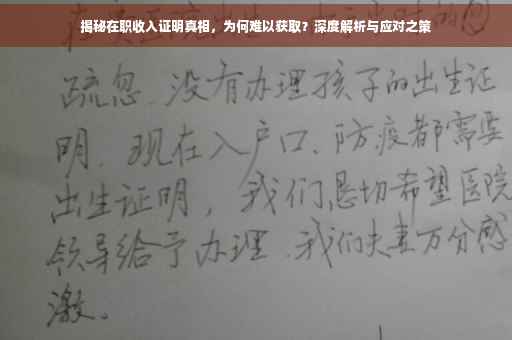 揭秘在职收入证明真相，为何难以获取？深度解析与应对之策
疏忽、没有办理孩子的出生证
明、现在入户口、防疫都需要
出生证明，我们恳切希望医院
领导给予办理、我们夫妻万分感
激。